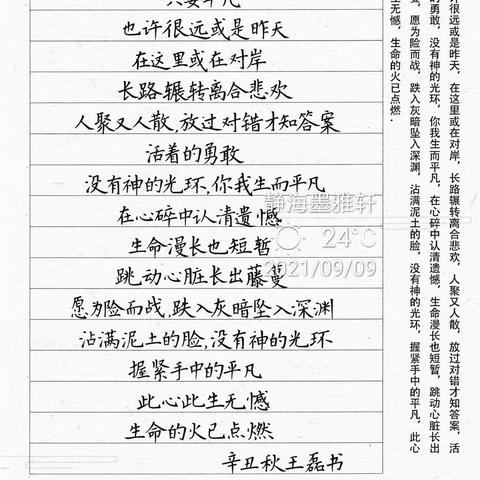 只要平凡
也许很远或是昨天
在这里或在对岸
长路辗转离合悲欢
人聚又人散,放过对错才知答案
活着的勇敢
没有神的光环,你我生而平凡
在心碎中认清遗憾
生命漫长也短暂
跳动心脏长出藤蔓
愿为险而战,跌入灰暗坠入深渊
沾满泥土的脸,没有神的光环
握紧手中的平凡
此心此生无憾
生命的火已点燃
辛丑秋王磊书
静海墨雅轩
24°C
2021/09/09
许很远或是昨天，在这里或在对岸，长路辗转离合悲欢，人聚又人散，放过对错才知答案，活
的勇敢，没有神的光环，你我生而平凡，在心碎中认清遗憾，生命漫长也短暂，跳动心脏长出
，愿为险而战，跌入灰暗坠入深渊，沾满泥土的脸，没有神的光环，握紧手中的平凡，此心
生无憾，生命的火已点燃．